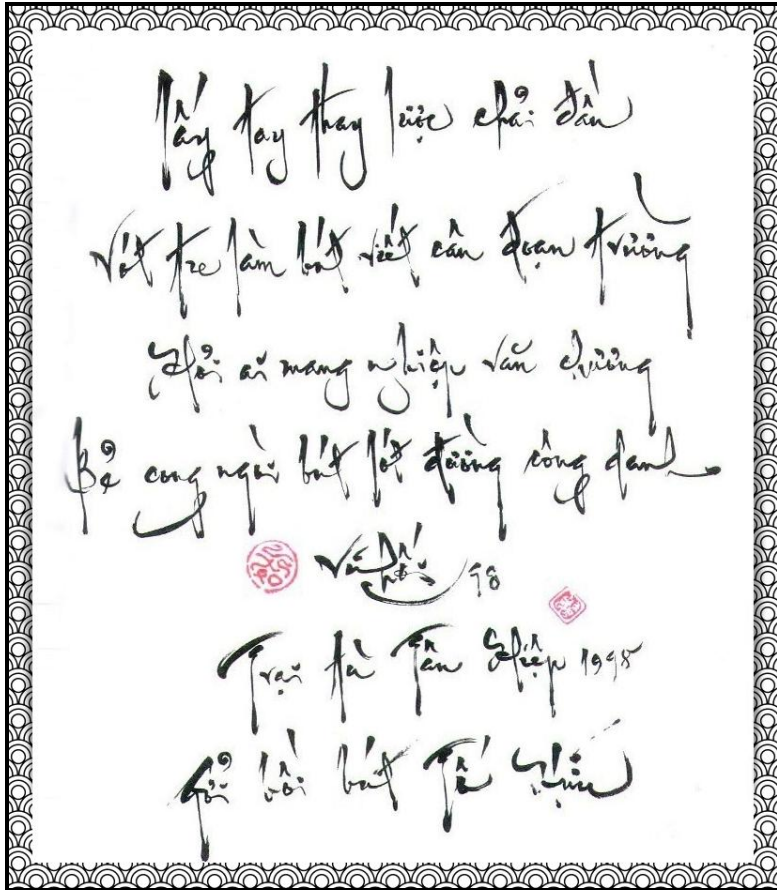 lấy tay thay lược chải đầu
Vót tre làm bút viết câu đoạn trường
Hỏi ai mang nghiệp văn chương
Bẻ cong ngòi bút lót đường công danh
Vũ Hối 98
Trại tù Tân Hiệp
Gởi bồi bút Tố Hữu